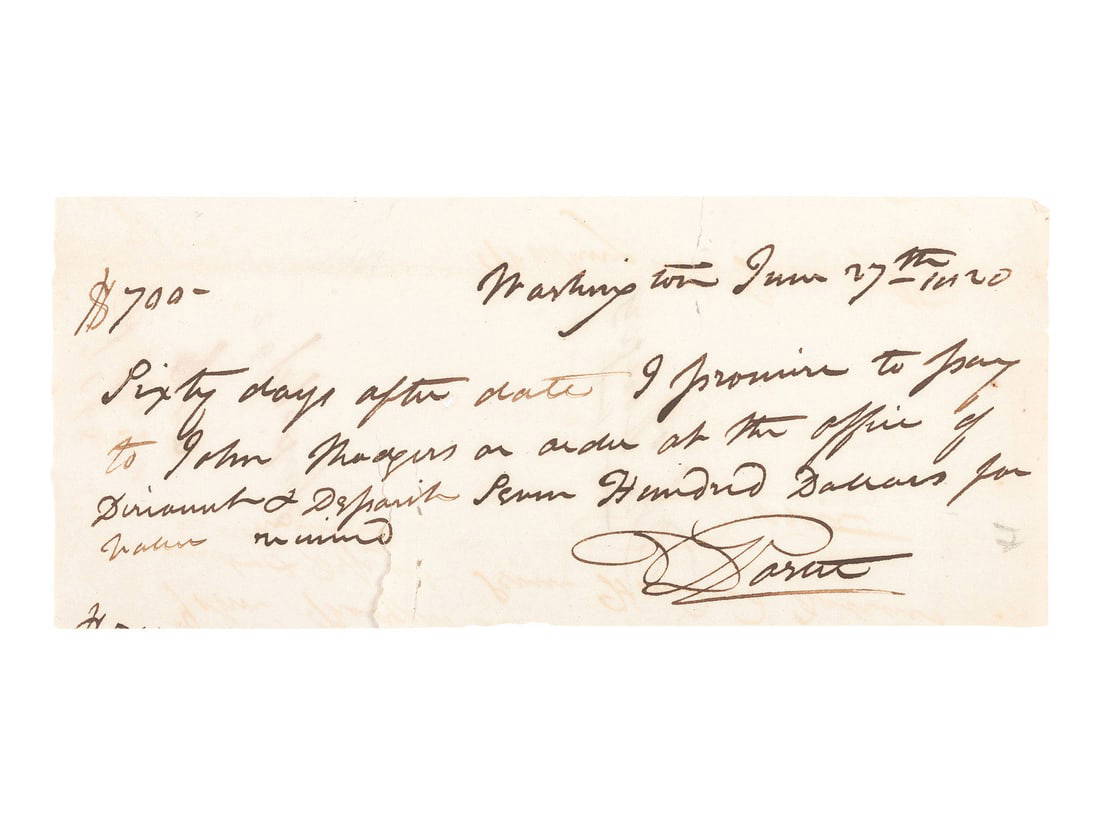 $700-
Washington June 27th 1820
Sixty days after date I promise to pay
to John Rodgers or order at the office of
Discount & Deposit Seven Hundred Dollars for
Value received
D Porter